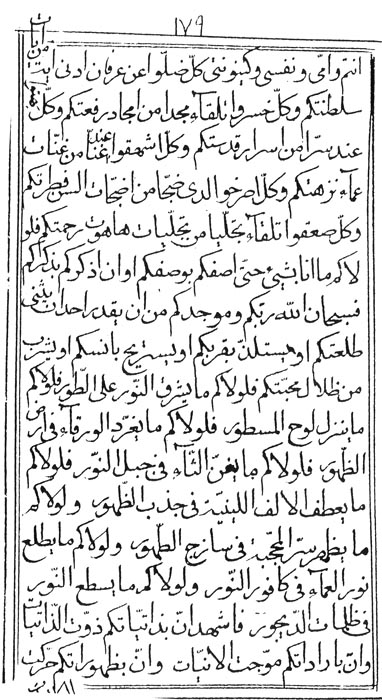 ١٧٩
انتم وامّی ونفسی وکینونتی کلّ ضلّوا عن عرفان ادنی آیة من آیات
سلطنتکم وکلّ خسروا تلقآء مجدا من امجاد رفعتکم وکلّ
عند سرّا من اسرار قدرتکم وکلّ انشهقوا عند غنّا من غنّات
عمآء نزهتکم وکلّ اصرخوا لدی ضجّا من اضجّات السن فطرتکم
وکلّ صعقوا تلقآء تجلّیا من تجلّیات هاهوت رحمتکم فلو
لاکم ما انا بشیء حتّی اصفکم بوصفکم او ان اذکرکم بذکراکم
فسبحان الله ربّکم وموجدکم من ان یقدر احدا ان یثنی
طلعتکم او یستلذّ بقربکم او یستریح بانسکم او یشرب
من ظلال محبّتکم فلولاکم ما یشرق النّور علی الطّور فلولاکم
ما ینزل لوح المسطور فلولاکم ما یغرّد الورقآء فی ارض
الظّهور فلولاکم ما یغنّ الثّآء فی جبل النّور فلولاکم
ما یعطف الالف اللینیّة فی جذب الظّهور ولولاکم
ما یظهر سرّ المحجّبة فی سازج الظّهور ولولاکم ما یطلع
نور العمآء فی کافور النّور ولولاکم ما یسطع النّور
فی ظلمات الدّیجور فاشهد انّ بذاتیّاتکم ذوّت الذّاتیات
وانّ بارادتکم موّجت الانّیات وانّ بظهوراتکم حرّکت